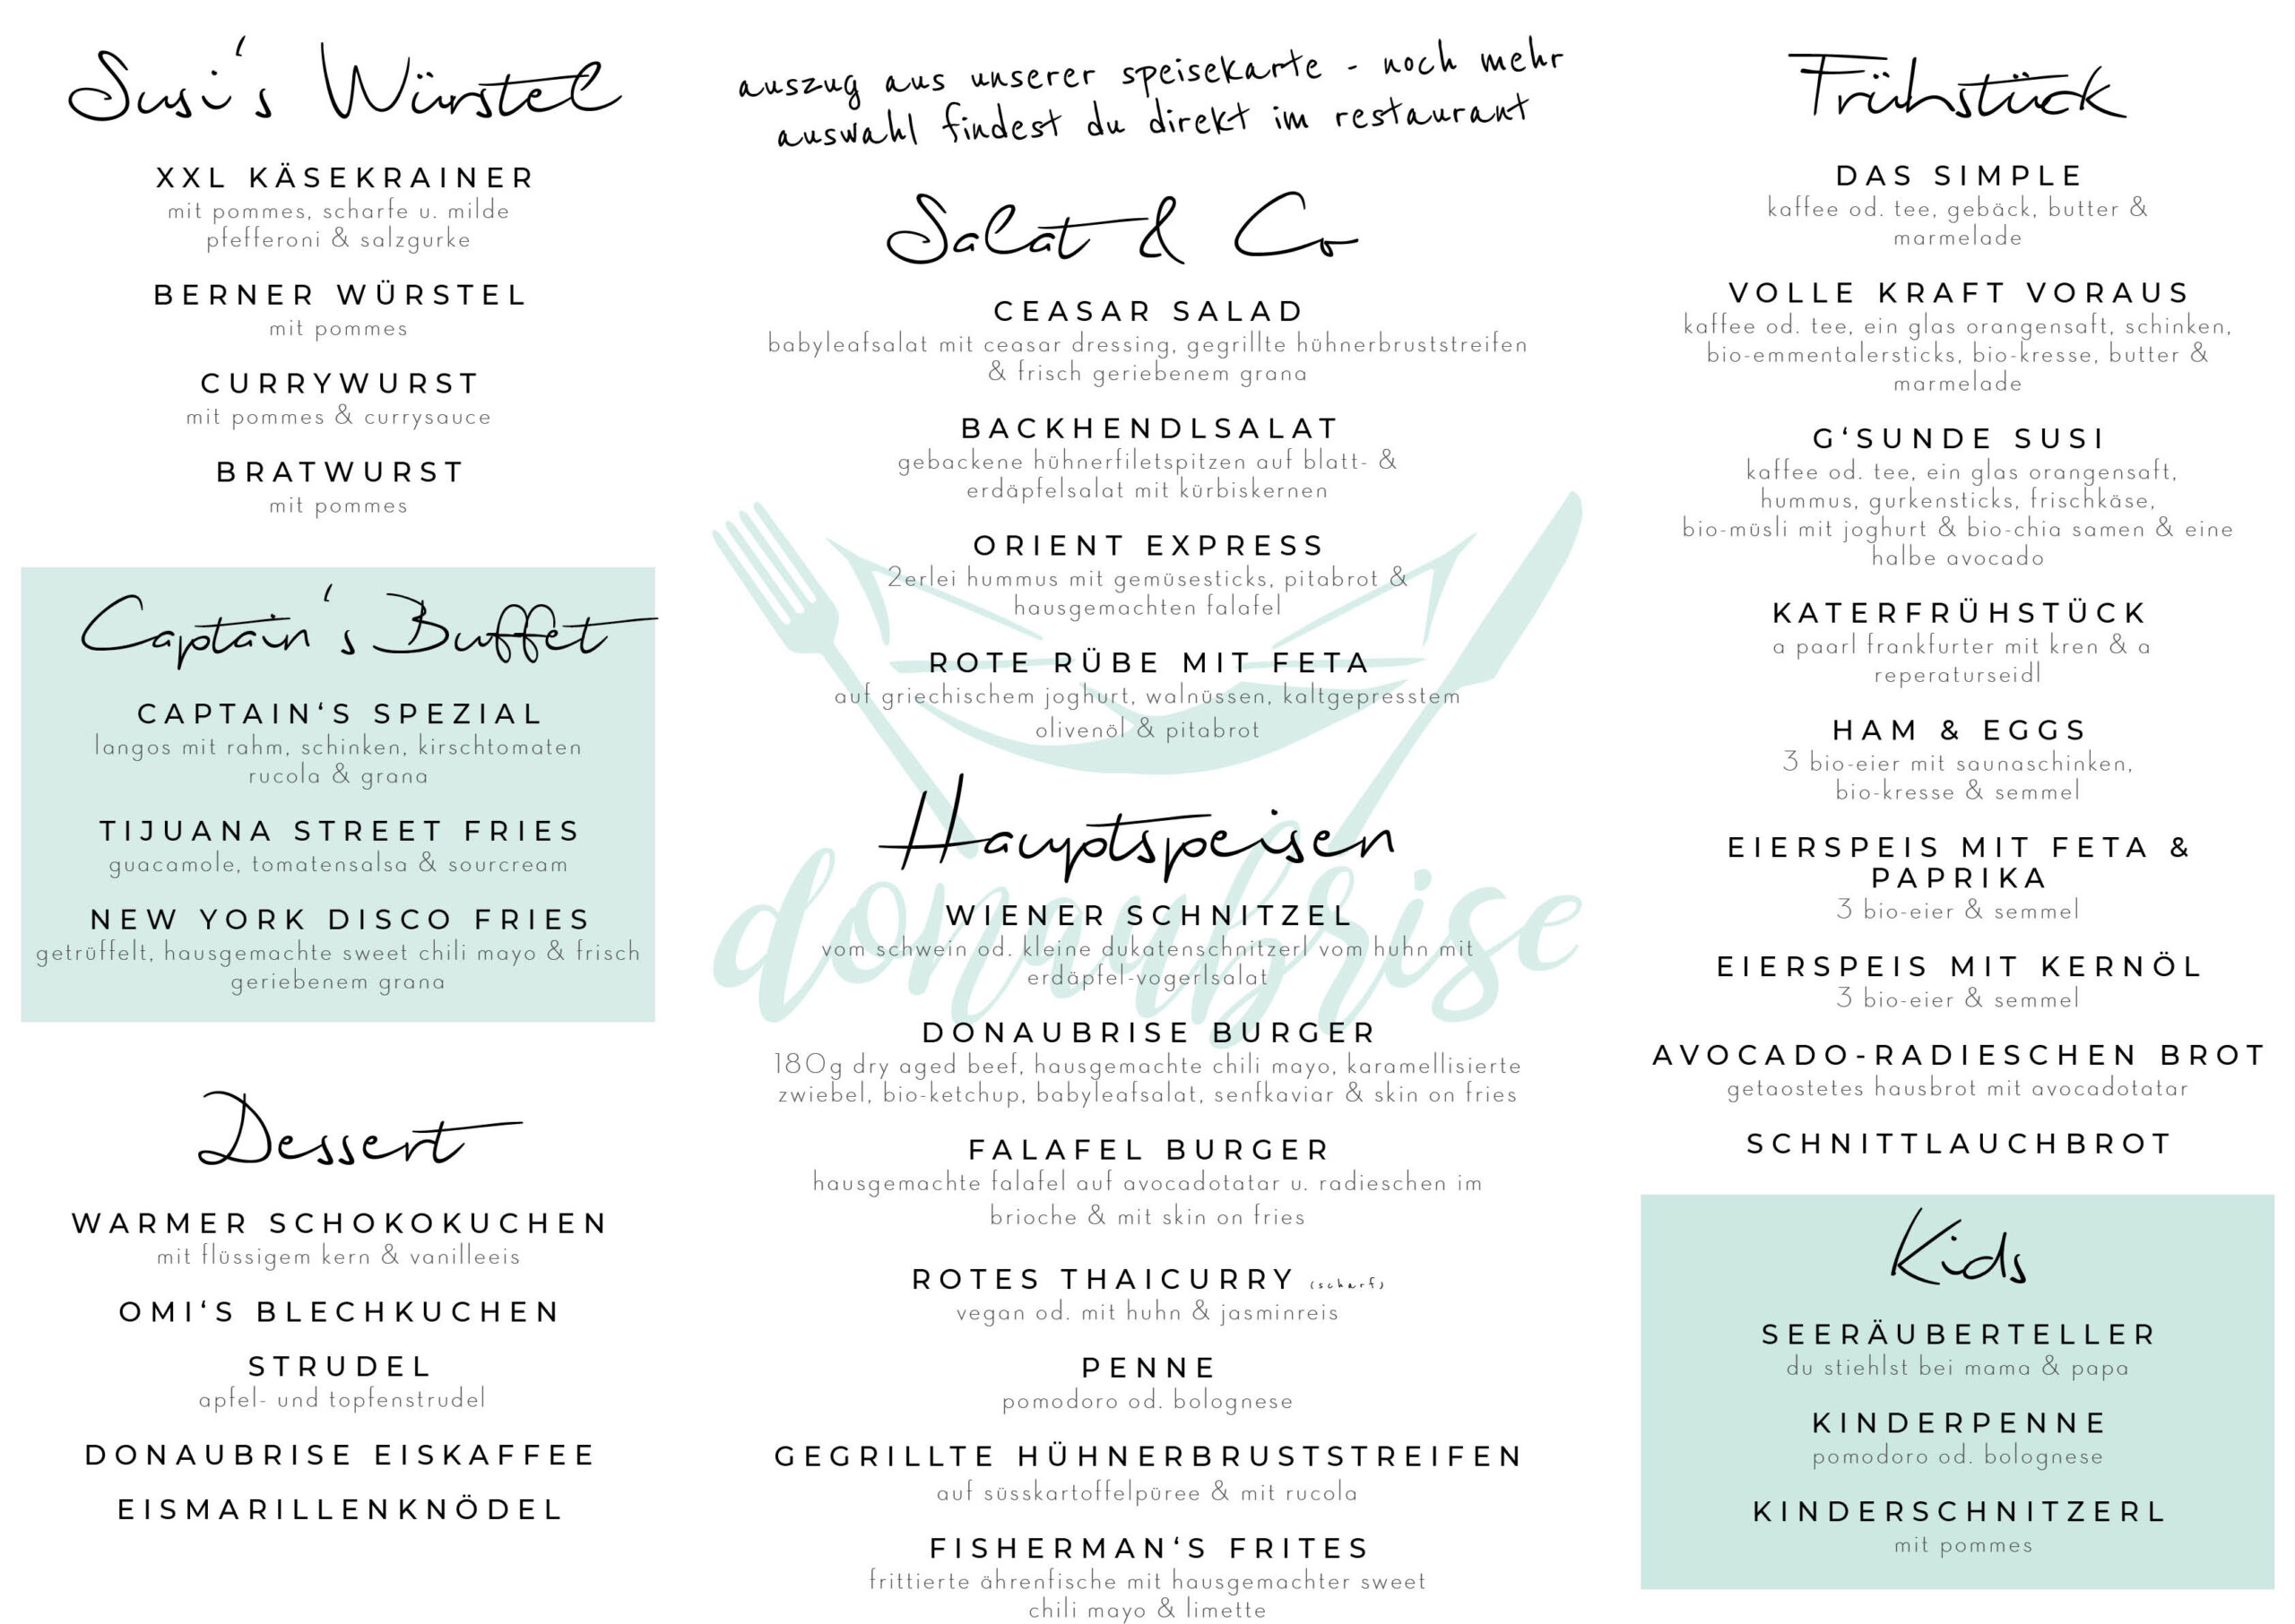 Susi's Würstel
XXL KÄSEKRAINER
mit pommes, scharfe u. milde
pfefferoni & salzgurke
BERNER WÜRSTEL
mit pommes
CURRYWURST
mit pommes & currysauce
BRATWURST
mit pommes
Captain's Buffet
CAPTAIN'S SPEZIAL
langos mit rahm, schinken, kirschtomaten
rucola & grana
TIJUANA STREET FRIES
guacamole, tomatensalsa & sourcream
NEW YORK DISCO FRIES
getrüffelt, hausgemachte sweet chili mayo & frisch
geriebenem grana
Dessert
WARMER SCHOKOKUCHEN
mit flüssigem kern & vanilleeis
OMI'S BLECHKUCHEN
STRUDEL
apfel- und topfenstrudel
DONAUBRISE EISKAFFEE
EISMARILLENKNÖDEL
auszug aus unserer speisekarte - noch mehr
auswahl findest du direkt im restaurant
Salat & Co
CEASAR SALAD
babyleafsalat mit ceasar dressing, gegrillte hühnerbruststreifen
& frisch geriebenem grana
BACKHENDLSALAT
gebackene hühnerfiletspitzen auf blatt- &
erdäpfelsalat mit kürbiskernen
ORIENT EXPRESS
2erlei hummus mit gemüsesticks, pitabrot &
hausgemachten falafel
ROTE RÜBE MIT FETA
auf griechischem joghurt, walnüssen, kaltgepresstem
olivenöl & pitabrot
Hauptspeisen
donaubrise
WIENER SCHNITZEL
vom schwein od. kleine dukatenschnitzerl vom huhn mit
erdäpfel-vogerlsalat
DONAUBRISE BURGER
180g dry aged beef, hausgemachte chili mayo, karamellisierte
zwiebel, bio-ketchup, babyleafsalat, senfkaviar & skin on fries
FALAFEL BURGER
hausgemachte falafel auf avocadotatar u. radieschen im
brioche & mit skin on fries
ROTES THAICURRY (scharf)
vegan od. mit huhn & jasminreis
PENNE
pomodoro od. bolognese
GEGRILLTE HÜHNERBRUSTSTREIFEN
auf süsskartoffelpüree & mit rucola
FISHERMAN'S FRITES
frittierte ährenfische mit hausgemachter sweet
chili mayo & limette
Frühstück
DAS SIMPLE
kaffee od. tee, gebäck, butter &
marmelade
VOLLE KRAFT VORAUS
kaffee od. tee, ein glas orangensaft, schinken,
bio-emmentalersticks, bio-kresse, butter &
marmelade
G'SUNDE SUSI
kaffee od. tee, ein glas orangensaft,
hummus, gurkensticks, frischkäse,
bio-müsli mit joghurt & bio-chia samen & eine
halbe avocado
KATERFRÜHSTÜCK
a paarl frankfurter mit kren & a
reperaturseidl
HAM & EGGS
3 bio-eier mit saunaschinken,
bio-kresse & semmel
EIERSPEIS MIT FETA &
PAPRIKA
3 bio-eier & semmel
EIERSPEIS MIT KERNÖL
3 bio-eier & semmel
AVOCADO-RADIESCHEN BROT
getaostetes hausbrot mit avocadotatar
SCHNITTLAUCHBROT
Kids
SEERÄUBERTELLER
du stiehlst bei mama & papa
KINDERPENNE
pomodoro od. bolognese
KINDERSCHNITZERL
mit pommes